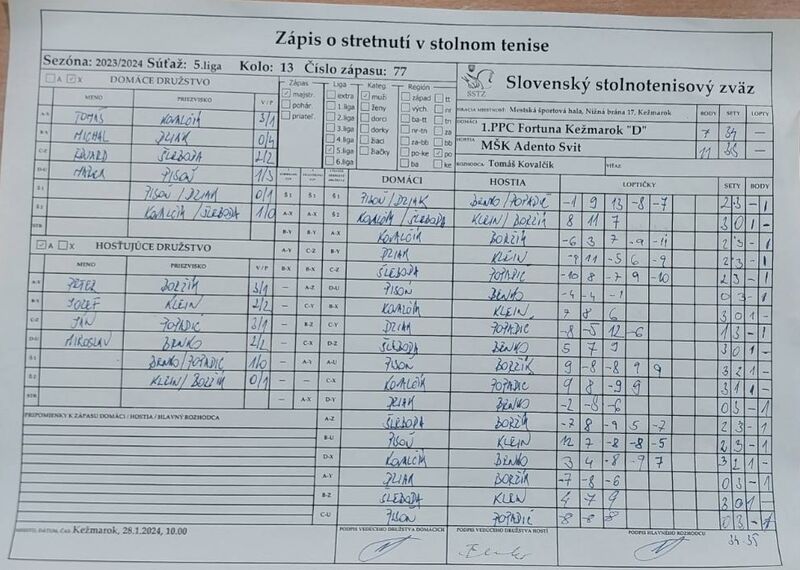 Zápis o stretnutí v stolnom tenise
Sezóna: 2023/2024 Súťaž: 5.liga Kolo: 13 Číslo zápasu: 77
A X DOMÁCE DRUŽSTVO
MENO PRIEZVISKO V / P
A-X TOMÁŠ KOVALČÍK 3/1
B-Y MICHAL DZIAK 0/4
C-Z EDUARD ŠLEBODA 2/2
D-U PISOŇ 1/3
Š1 PISOŇ / DZIAK 0/1
Š2 KOVALČÍK / ŠLEBODA 1/0
STR
A X HOSŤUJÚCE DRUŽSTVO
MENO PRIEZVISKO V / P
A-X PETER BORŽÍK 3/1
B-Y JOZEF KLEIN 2/2
C-Z JÁN POPADIČ 3/1
D-U MIROSLAV BRNKO 2/2
Š1 BRNKO / POPADIČ 1/0
Š2 KLEIN / BORŽÍK 0/1
STR
PRIPOMIENKY K ZÁPASU DOMÁCI / HOSTIA / HLAVNÝ ROZHODCA
Zápas
majstr.
pohár.
priateľ.
Liga
extra
1.liga
2.liga
3.liga
4.liga
5.liga
6.liga
Kateg.
muži
ženy
dorci
dorky
žiaci
žiačky
Región
západ tt
vých. nr
ba-tt tn
nr-tn za
za-bb bb
po-ke po
ba ke
SSTZ
Slovenský stolnotenisový zväz
HRACIA MIESTNOSŤ: Mestská športová hala, Nižná brána 17, Kežmarok BODY SETY LOPTY
DOMÁCI 1.PPC Fortuna Kežmarok "D" 7 34 —
HOSTIA MŠK Adento Svit 11 35 —
ROZHODCA Tomáš Kovalčík VÍŤAZ
DOMÁCI HOSTIA LOPTIČKY SETY BODY
Š1 Š1 Š1 PISOŇ / DZIAK BRNKO / POPADIČ -1 9 13 -8 -7 2 3 - 1
A-X A-X Š2 KOVALČÍK / ŠLEBODA KLEIN / BORŽÍK 8 11 7 3 0 1 -
B-Y B-Y A-X KOVALČÍK BORŽÍK -6 3 7 -9 -11 2 3 - 1
A-Y C-Z B-Y DZIAK KLEIN 11 -5 6 -9 2 3 - 1
B-X B-X C-Z ŠLEBODA POPADIČ -10 8 -7 9 -10 2 3 - 1
— A-Z D-U PISOŇ BRNKO -4 -4 -1 0 3 - 1
— C-Y B-X KOVALČÍK KLEIN 7 8 6 3 0 1 -
— B-Z C-Y DZIAK POPADIČ -8 -5 12 -6 1 3 - 1
— C-X D-Z ŠLEBODA BRNKO 5 7 9 3 0 1 -
— A-Y A-U PISOŇ BORŽÍK 9 -8 -8 9 9 3 2 1 -
— — C-X KOVALČÍK POPADIČ 9 8 -9 9 3 1 1 -
— A-X D-Y DZIAK BRNKO -2 -8 -6 0 3 - 1
A-Z ŠLEBODA BORŽÍK -7 8 -9 5 -7 2 3 - 1
B-U PISOŇ KLEIN 12 7 -8 -8 -5 2 3 - 1
D-X KOVALČÍK BRNKO 3 4 -8 -9 7 3 2 1 -
A-Y DZIAK BORŽÍK -7 -8 -6 0 3 - 1
B-Z ŠLEBODA KLEIN 4 7 9 3 0 1 -
C-U PISOŇ POPADIČ -8 -8 -8 0 3 - 1
MIESTO, DÁTUM, ČAS Kežmarok, 28.1.2024, 10.00
PODPIS VEDÚCEHO DRUŽSTVA DOMÁCICH PODPIS VEDÚCEHO DRUŽSTVA HOSTÍ PODPIS HLAVNÉHO ROZHODCU
34-35